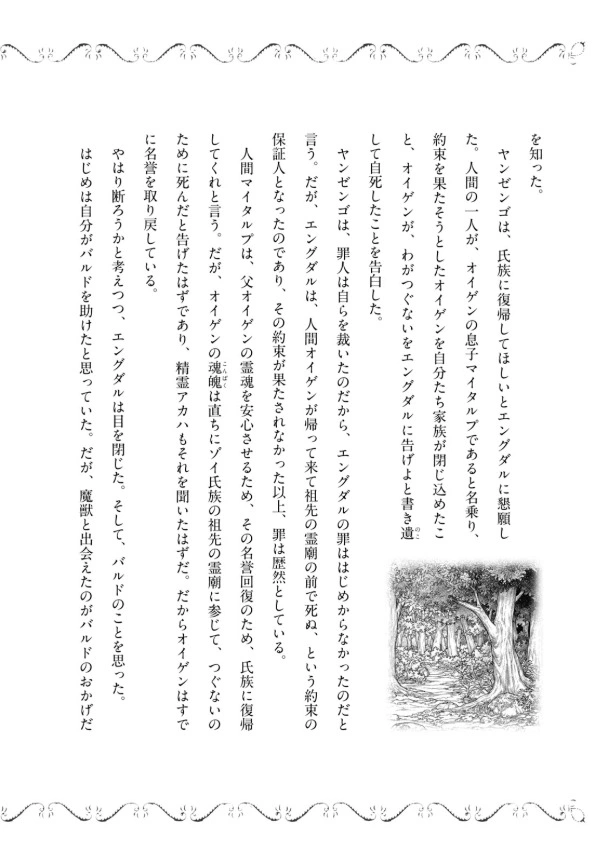 を知った。
ヤンゼンゴは、氏族に復帰してほしいとエングダルに懇願し
た。人間の一人が、オイゲンの息子マイタルプであると名乗り、
約束を果たそうとしたオイゲンを自分たち家族が閉じ込めたこ
と、オイゲンが、わがつぐないをエングダルに告げよと書き遺のこ
して自死したことを告白した。
ヤンゼンゴは、罪人は自らを裁いたのだから、エングダルの罪ははじめからなかったのだと
言う。だが、エングダルは、人間オイゲンが帰って来て祖先の霊廟の前で死ぬ、という約束の
保証人となったのであり、その約束が果たされなかった以上、罪は歴然としている。
人間マイタルプは、父オイゲンの霊魂を安心させるため、その名誉回復のため、氏族に復帰
してくれと言う。だが、オイゲンの魂魄こんぱくは直ちにゾイ氏族の祖先の霊廟に参じて、つぐないの
ために死んだと告げたはずであり、精霊アカハもそれを聞いたはずだ。だからオイゲンはすで
に名誉を取り戻している。
やはり断ろうかと考えつつ、エングダルは目を閉じた。そして、バルドのことを思った。
はじめは自分がバルドを助けたと思っていた。だが、魔獣と出会えたのがバルドのおかげだ